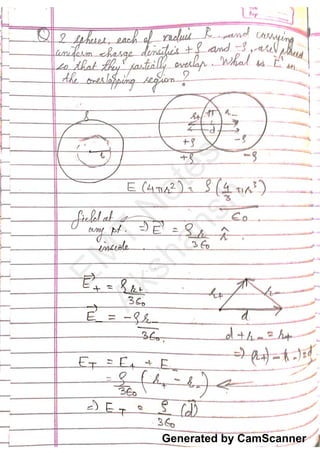 2 spheres, each of radius R and carrying
uniform charge densities +ρ and -ρ, are placed
so that they partially overlap. What is E in
the overlapping region?
ρ
r
r+ r-
d
+ρ -ρ
+ρ -ρ
E (4πr²) = ρ (4/3 πr³)
ε₀
field at
any pt. inside => E⃗ = ρr/3ε₀ r̂
E⃗+ = ρr+/3ε₀
E⃗- = -ρr-/3ε₀
r+ r-
d
d + r- = r+
=> (r+) - (r-) = d
E_T = E+ + E-
= ρ/3ε₀ (r+ - r-)
=> E_T = ρ/3ε₀ (d⃗)
Generated by CamScanner